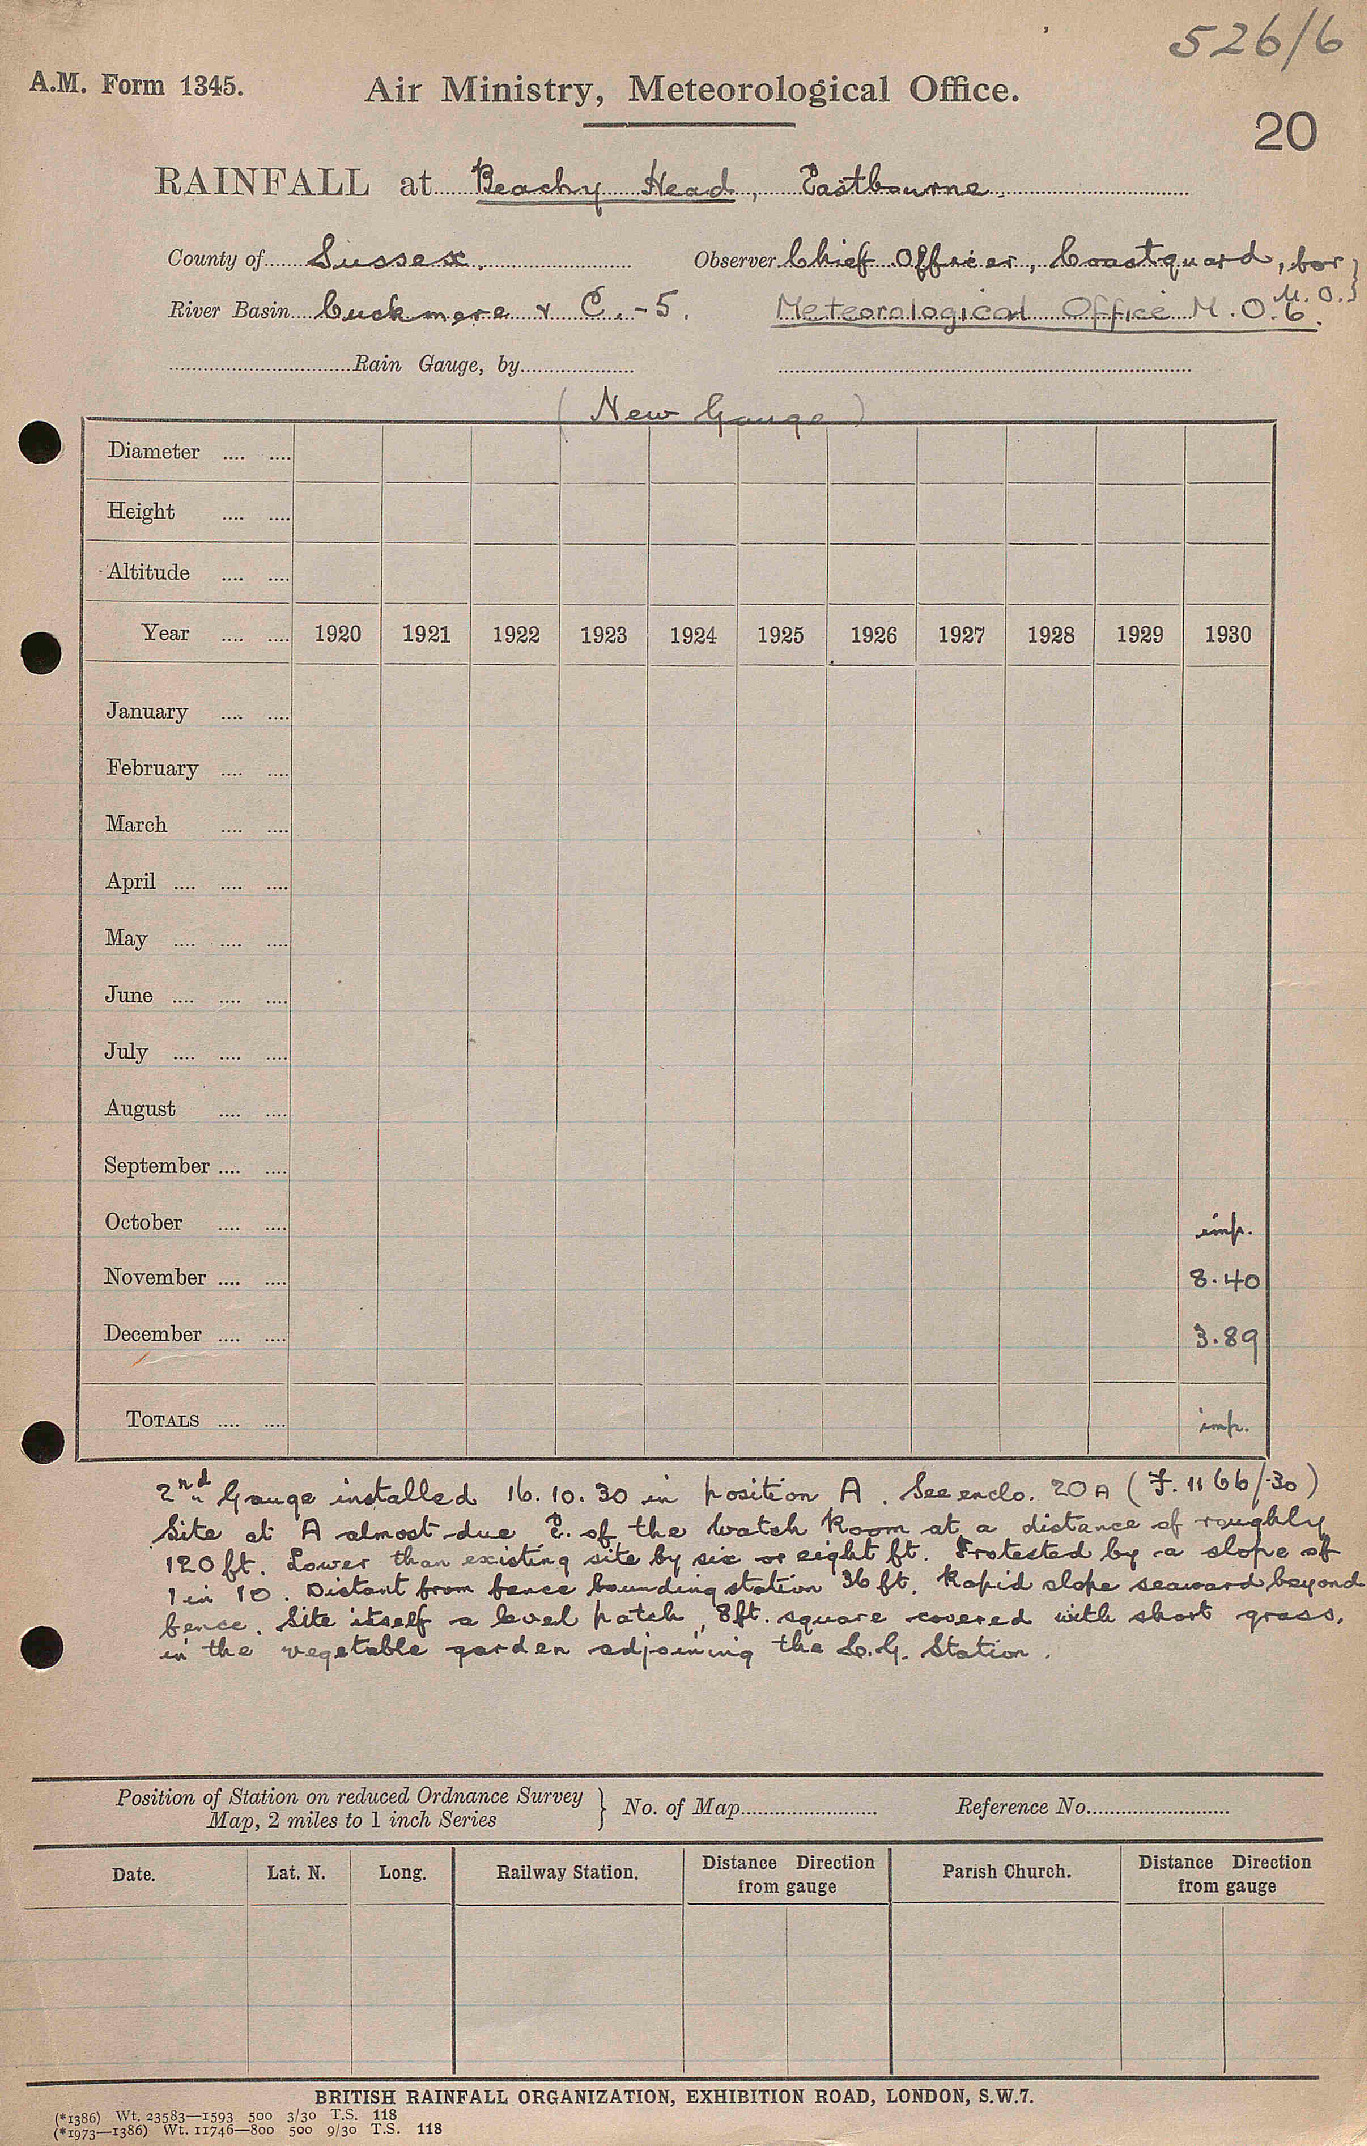 526/6
A.M. Form 1345. Air Ministry, Meteorological Office.
20
RAINFALL at Beachy Head, Eastbourne.
County of Sussex. Observer Chief Officer, Coastguard, for }
River Basin Cuckmere & C. -5. Meteorological Office M.O.6. M.O.}
Rain Gauge, by
(New Gauge)
Diameter
Height
Altitude
Year 1920 1921 1922 1923 1924 1925 1926 1927 1928 1929 1930
January
February
March
April
May
June
July
August
September
October imp.
November 8.40
December 3.89
TOTALS imp.
2nd Gauge installed 16.10.30 in position A. See enclo. 20A (F. 1166/30)
Site at A almost due E. of the Watch Room at a distance of roughly
120 ft. Lower than existing site by six or eight ft. Protected by a slope of
1 in 10. Distant from fence bounding station 36 ft. Rapid slope seaward beyond
fence. Site itself a level patch, 8ft. square covered with short grass,
in the vegetable garden adjoining the C.G. Station.
Position of Station on reduced Ordnance Survey } No. of Map Reference No.
Map, 2 miles to 1 inch Series
Date. Lat. N. Long. Railway Station. Distance Direction Parish Church. Distance Direction
from gauge from gauge
BRITISH RAINFALL ORGANIZATION, EXHIBITION ROAD, LONDON, S.W.7.
(*1386) Wt. 23583—1593 500 3/30 T.S. 118
(*1973—1386) Wt. 11746—800 500 9/30 T.S. 118